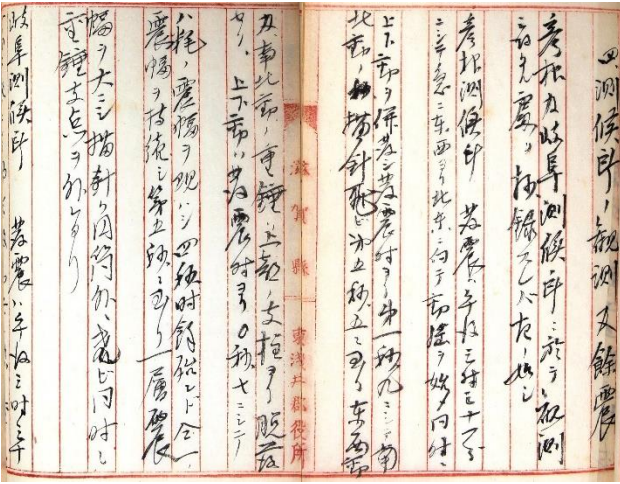 四、測候所ノ観測及餘震
彦根及岐阜測候所ニ於テ観測
抄録スレバ左ノ如シ
彦根測候所　発震ハ午後三時三十一分
ニシテ急ニ東西ヨリ北東ニ向テ動揺ヲ始メ同時ニ
上下動ヲ併発シ発震時ヨリ第一秒九ニシテ南
北動ノ描針飛ビ第五秒五ニ至リ東西動
滋賀縣
東浅井郡役所
及南北動ノ重錘上部ノ支柱ヨリ脱落
セリ、上下動ハ発震時ヨリ〇秒七ニシテ
八粍ノ震幅ヲ現ハシ四秒時餘殆ンド仝一
震幅ヲ持続シ第五秒ニ至リ一層震
幅ヲ大ニシ描針ハ円筒外ニ飛ビ同時ニ
重錘支点ヲ外レタリ
岐阜測候所　発震ハ午後三時三十